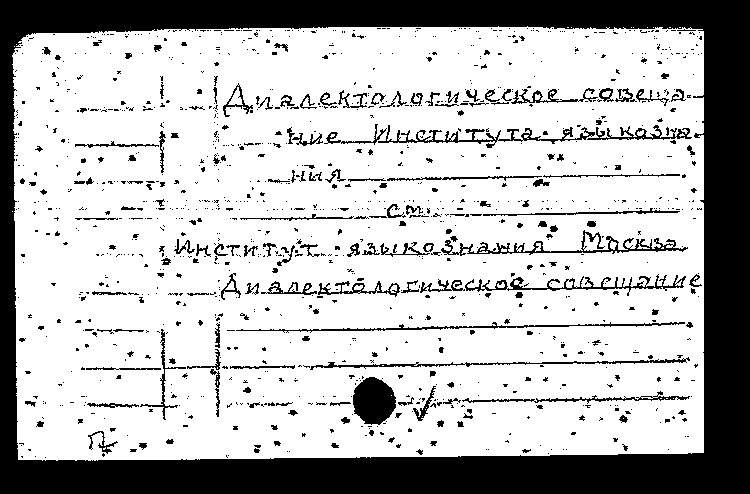 Диалектологическое совеща-
ние Института языкозна-
ния
см.
Институт языкознания Москва
Диалектологическое совещание